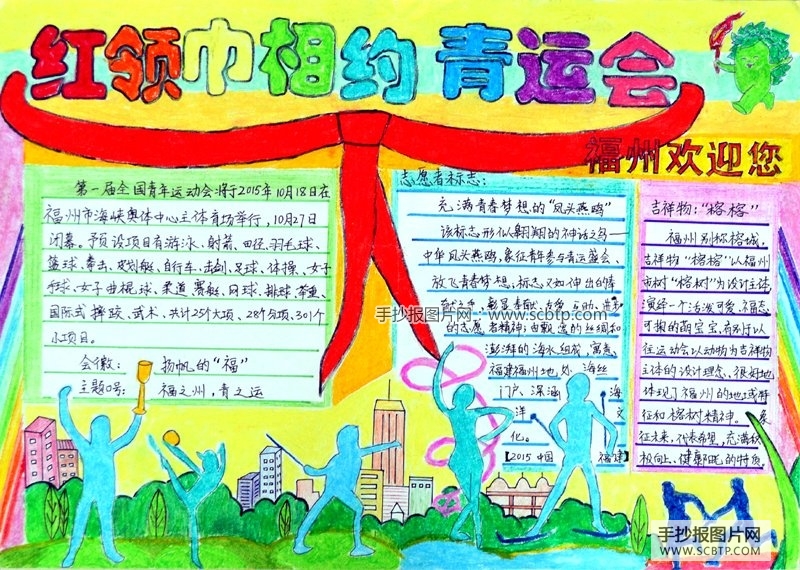 红领巾相约 青运会
福州欢迎您
第一届全国青年运动会将于2015年10月18日在
福州市海峡奥体中心主体育场举行，10月27日
闭幕。予预设项目有游泳、射箭、田径、羽毛球、
篮球、拳击、皮划艇、自行车、击剑、足球、体操、女子
手球、女子曲棍球、柔道、赛艇、网球、排球、举重、
国际式摔跤、武术、共计25个大项、28个分项、301个
小项目。
会徽： 扬帆的“福”
主题口号： 福之州，青之运
志愿者标志：
充满青春梦想的“凤头燕鸥”
该标志形似翱翔的神话之鸟——
中华凤头燕鸥，象征青年参与青运盛会、
放飞青春梦想，标志又如伸出的
的志愿者精神；由飘逸的丝绸和
澎湃的海水组成，寓意
福建福州地处 海丝
门户、深涵 海
洋 文
化。
【2015 中国 福建】
吉祥物：“榕榕”
福州别称榕城，
吉祥物“榕榕”以福州
市树“榕树”为设计主体
演绎一个活泼可爱、福态
可掬的萌宝宝，有别于以
往运动会以动物为吉祥物
主体的设计理念，很好地
体现了福州的地域特
征和榕树精神。 象
征未来，代表希望，充满积
极向上、健康阳光的特质。
手抄报图片网
www.scbtp.com
手抄报图片网
WWW.SCBTP.COM